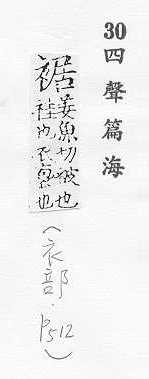 30四聲篇海
裾
姜魚切被也
袿也衣裒也
（衣部．P512）